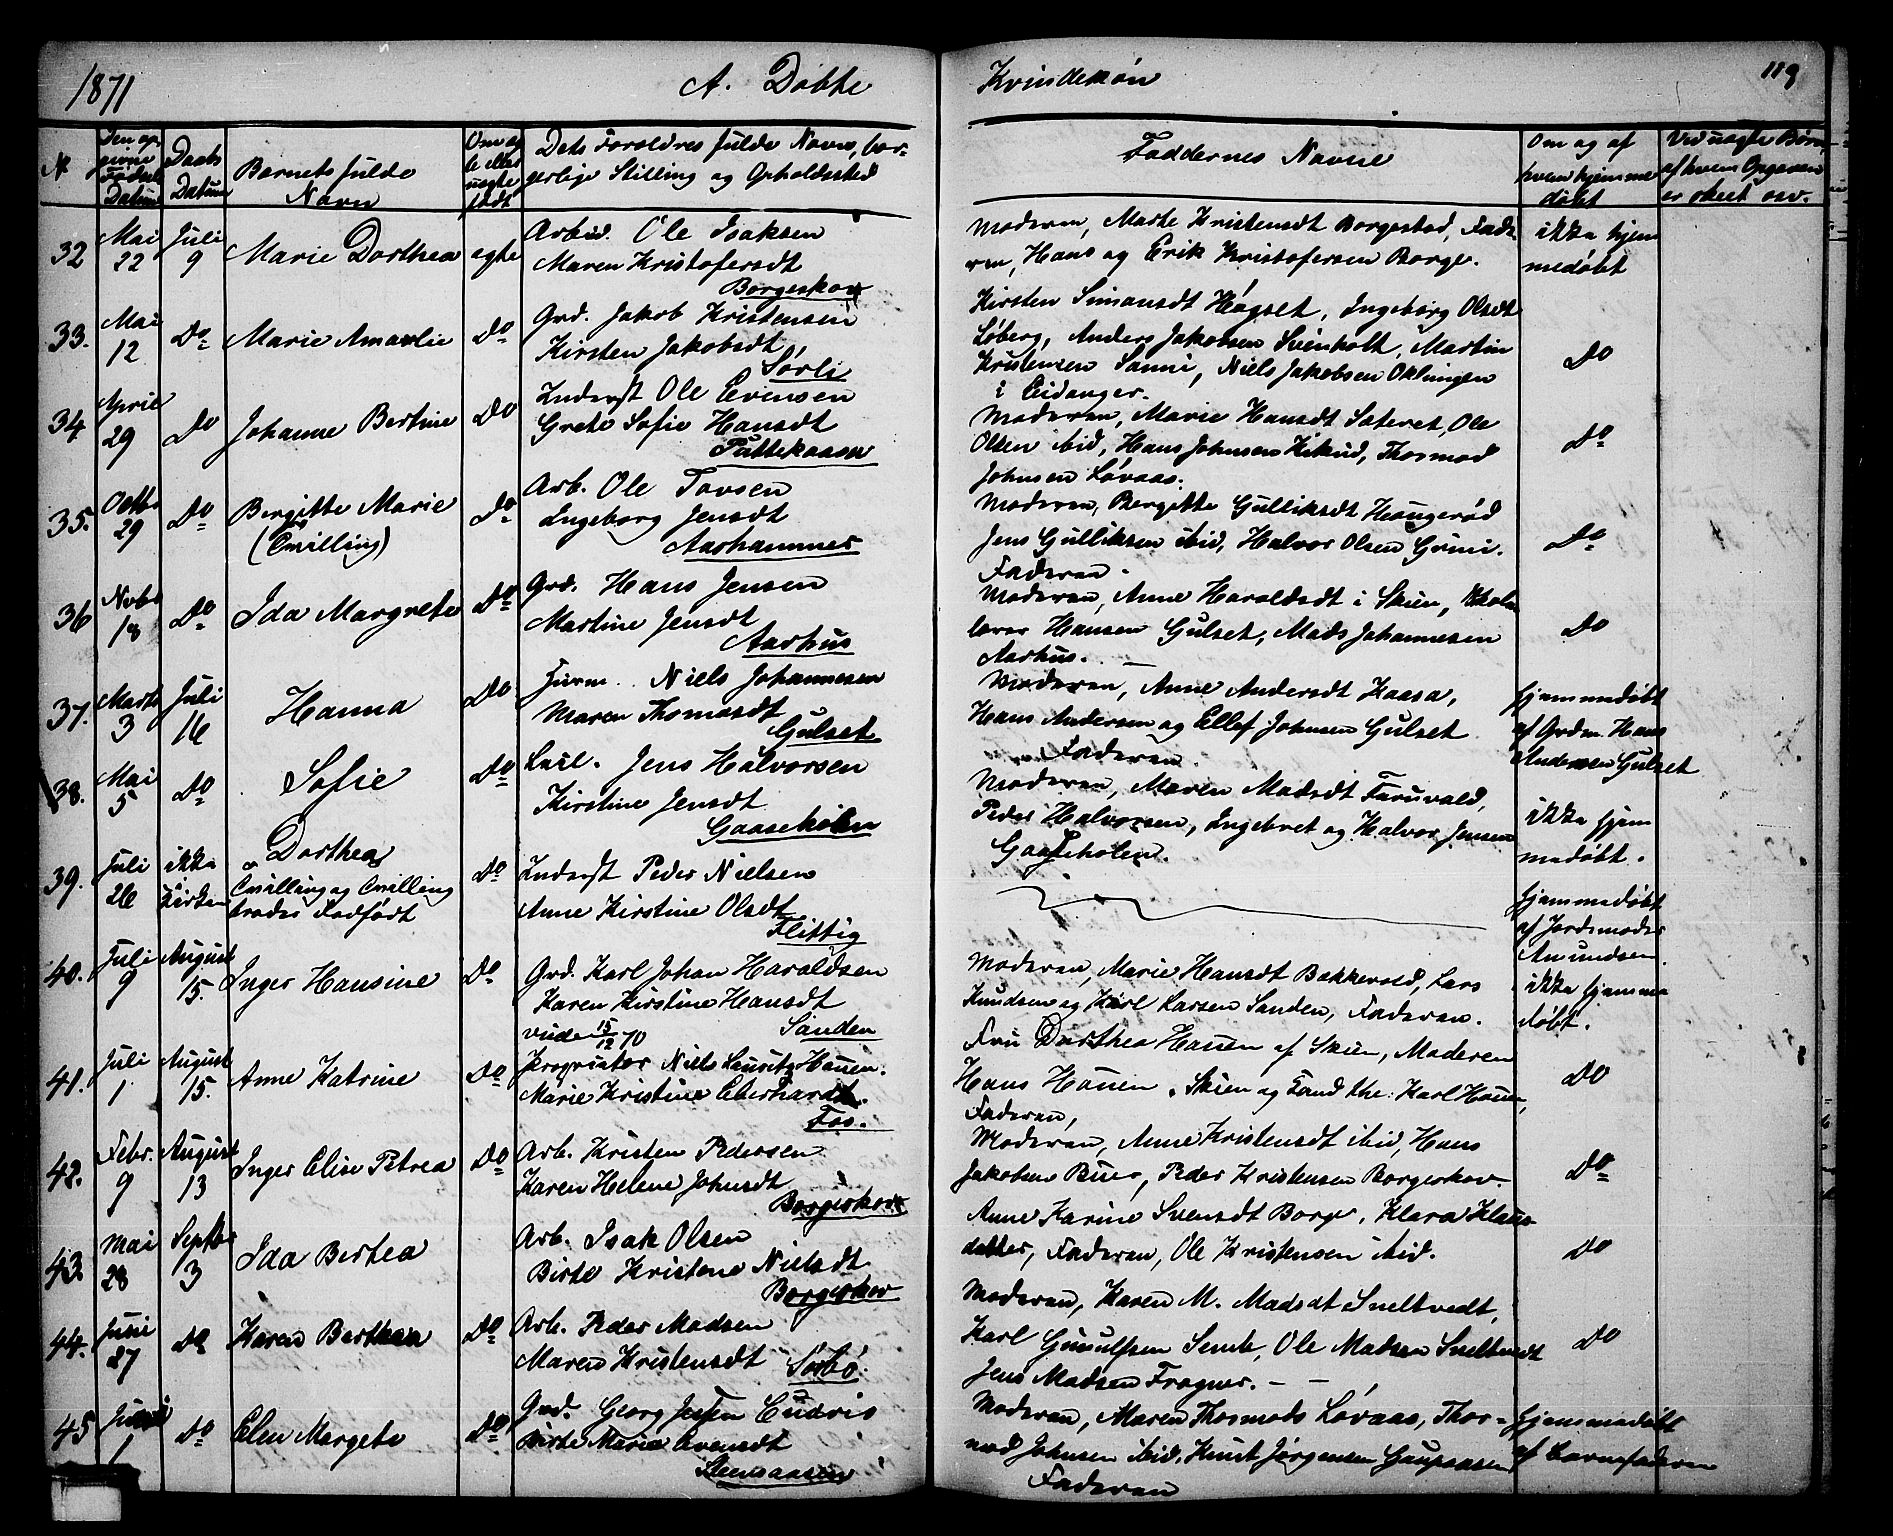 1871 A. Døbte Kvindekøn 119
N. Den opgivne Fødsels Datum Daabs Datum Barnets fulde Navn Om ægte eller uægte født Dets Forældres fulde Navne, borgerlige Stilling og Opholdssted Faddernes Navne Om og af hvem hjemmedøbt Ved uægte Børn af hvem Opgaven er skeet osv.
32 Mai 22 Juli 9 Marie Dorthea ægte
Arbeid. Ole Isaksen
Maren Kristofersdt
Borgeskov
Moderen, Marte Kristensdt Borgestad, Fade
ren, Hans og Erik Kristofersen Borge.
ikke hjem
medøbt
33. Mai 12 Do Marie Amalie Do
Grd. Jakob Kristensen
Kirsten Jakobsdt
Sørli
Kirsten Simonsdt Høgset, Ingeborg Olsdt
Løberg, Anders Jakobsen Svinholt, Martin
Kristensen Sanni, Niels Jakobsen Oklungen
i Eidanger.
Do
34 April 29 Do Johanne Bertine Do
Inderst Ole Evensen
Grete Sofie Hansdt
Puttekaasa
Moderen, Marie Hansdt Sateret, Ole
Olsen ibid, Hans Johnsen Kikud, Thormod
Johnsen Løvaas.
Do
35. Octbr 29 Do Bergitte Marie
(Tvilling) Do
Arb. Ole Tovsen
Ingeborg Jensdt
Aarhammer
Moderen, Bergitte Gulliksdt Haugerød
Jens Gulliksen ibid, Halvor Olsen Grini.
Faderen.
Do
36 Novbr 18 Do Ida Margrete Do
Grd. Hans Jensen
Martine Jensdt
Aarhus
Moderen, Anne Haroldsdt i Skien,
Hansen Gulset, Mads Johannesen
Aarhus.
Do
37. Marts 3 Juli 16 Hanna Do
Niels Johannesen
Maren Thomasdt
Gulset
Moderen, Anne Andersdt Kaasa,
Hans Andersen og Ellef Johnsen Gulset
Faderen.
hjemmedøbt
af Grdm. Hans
Andersen Gulset
38. Mai 5 Do Sofie Do
Jens Halvorsen
Kirstine Jensdt
Gaaseholen
Moderen, Maren Madsdt Furuvald,
Peder Halvorsen, Ingebret og Halvor Jensen
Gaaseholen.
ikke hjem
medøbt.
39. Juli 26 ikke i Kirken Dorthea
Tvilling og Tvilling
broder Dødfødt Do
Inderst Peder Nielsen
Anne Kirstine Olsdt
Flittig
hjemmedøbt
af Jordemoder
Amundsen.
40. Juli 9 August 15. Inger Hansine Do
Grd. Karl Johan Haraldsen
Karen Kirstine Hansdt
viede 15/12 70 Sanden
Moderen, Marie Hansdt Bakkevold, Lars
Knudsen og Karl Larsen Sanden, Faderen.
ikke hjemme
døbt.
41. Juli 1 August 15. Anne Katrine Do
Proprietær Niels Lauritz Houen.
Marie Kristine Eberhardt.
Fos.
Fru Dorthea Houen af Skien, Moderen
Hans Houen, Skien og Kand. the: Karl Houen,
Faderen,
Do
42. Febr. 9 August 13 Inger Elise Petrea Do
Arb. Kristen Pedersen
Karen Helene Johnsdt
Borgeskov
Moderen, Anne Kristensdt ibid, Hans
Jakobsen Buer, Peder Kristensen Borgeskov.
Do
43. Mai 28 Septbr 3 Ida Bertea
Arb. Isak Olsen
Birte Kristene Nielsdt
Borgeskov
Anne Karine Svensdt Borge, Klara Klaus
datter, Faderen, Ole Kristensen ibid.
Do
44. Juni 27 Do Karen Berthea Do
Arb. Peder Madsen
Maren Kristensdt Sørbø.
Moderen, Karen M. Madsdt Sneltvedt,
Karl Gunulfsen Sem, Ole Madsen Sneltvedt
Jens Madsen Frogner. —
Do
45 1 Do Elen Margete Do
Grd. Georg Jensen
Birte Marie Evensdt
Steensaasen
Moderen, Maren Thormods Løvaas, Thor-
mod Johnsen ibid, Knut Jørgensen Gaupaasen
Faderen
hjemmedøbt
af Barnefaderen